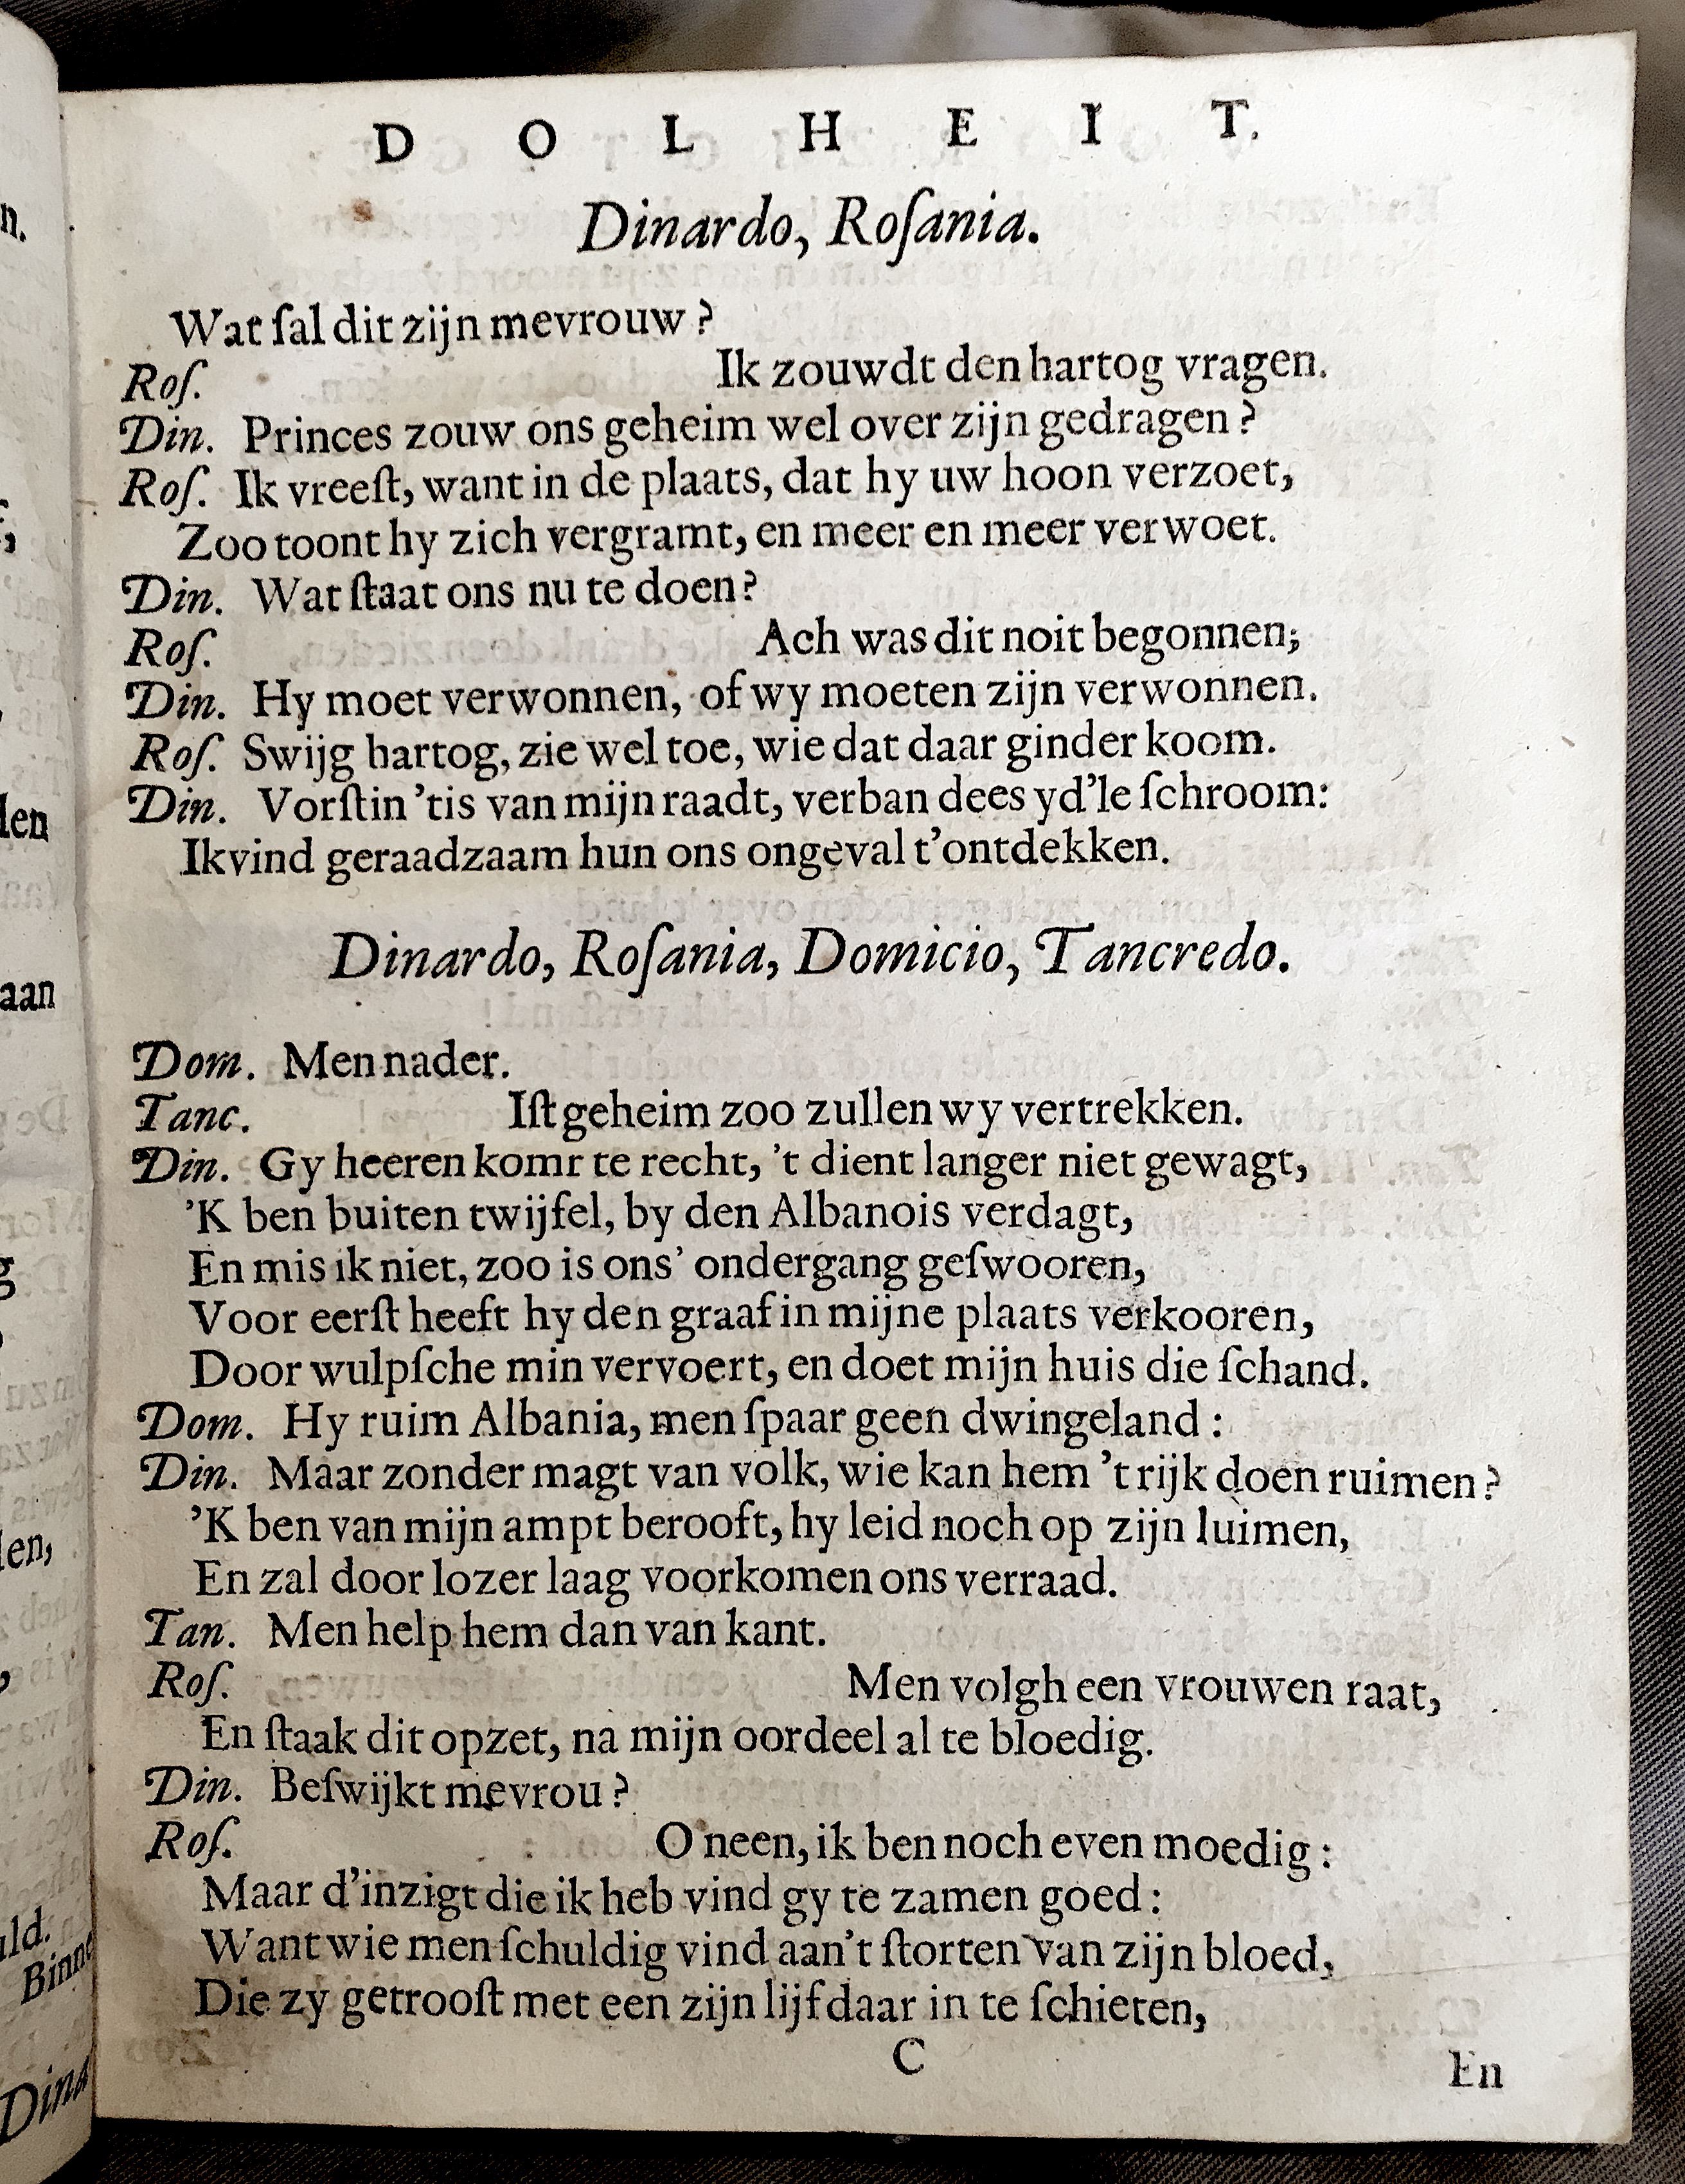 D O L H E I T.
Dinardo, Roſania.
Wat ſal dit zijn mevrouw ?
Roſ. Ik zouwdt den hartog vragen.
Din. Princes zouw ons geheim wel over zijn gedragen ?
Roſ. Ik vreeſt, want in de plaats, dat hy uw hoon verzoet,
Zoo toont hy zich vergramt, en meer en meer verwoet.
Din. Wat ſtaat ons nu te doen?
Roſ. Ach was dit noit begonnen;
Din. Hy moet verwonnen, of wy moeten zijn verwonnen.
Roſ. Swijg hartog, zie wel toe, wie dat daar ginder koom.
Din. Vorſtin 'tis van mijn raadt, verban dees yd'le ſchroom:
Ik vind geraadzaam hun ons ongeval t'ontdekken.
Dinardo, Roſania, Domicio, Tancredo.
Dom. Men nader.
Tanc. Iſt geheim zoo zullen wy vertrekken.
Din. Gy heeren komr te recht, 't dient langer niet gewagt,
'K ben buiten twijfel, by den Albanois verdagt,
En mis ik niet, zoo is ons' ondergang geſwooren,
Voor eerſt heeft hy den graaf in mijne plaats verkooren,
Door wulpſche min vervoert, en doet mijn huis die ſchand.
Dom. Hy ruim Albania, men ſpaar geen dwingeland :
Din. Maar zonder magt van volk, wie kan hem 't rijk doen ruimen ?
'K ben van mijn ampt berooft, hy leid noch op zijn luimen,
En zal door lozer laag voorkomen ons verraad.
Tan. Men help hem dan van kant.
Roſ. Men volgh een vrouwen raat,
En ſtaak dit opzet, na mijn oordeel al te bloedig.
Din. Beſwijkt mevrou ?
Roſ. O neen, ik ben noch even moedig :
Maar d'inzigt die ik heb vind gy te zamen goed :
Want wie men ſchuldig vind aan't ſtorten van zijn bloed,
Die zy getrooſt met een zijn lijf daar in te ſchieten,
C
En